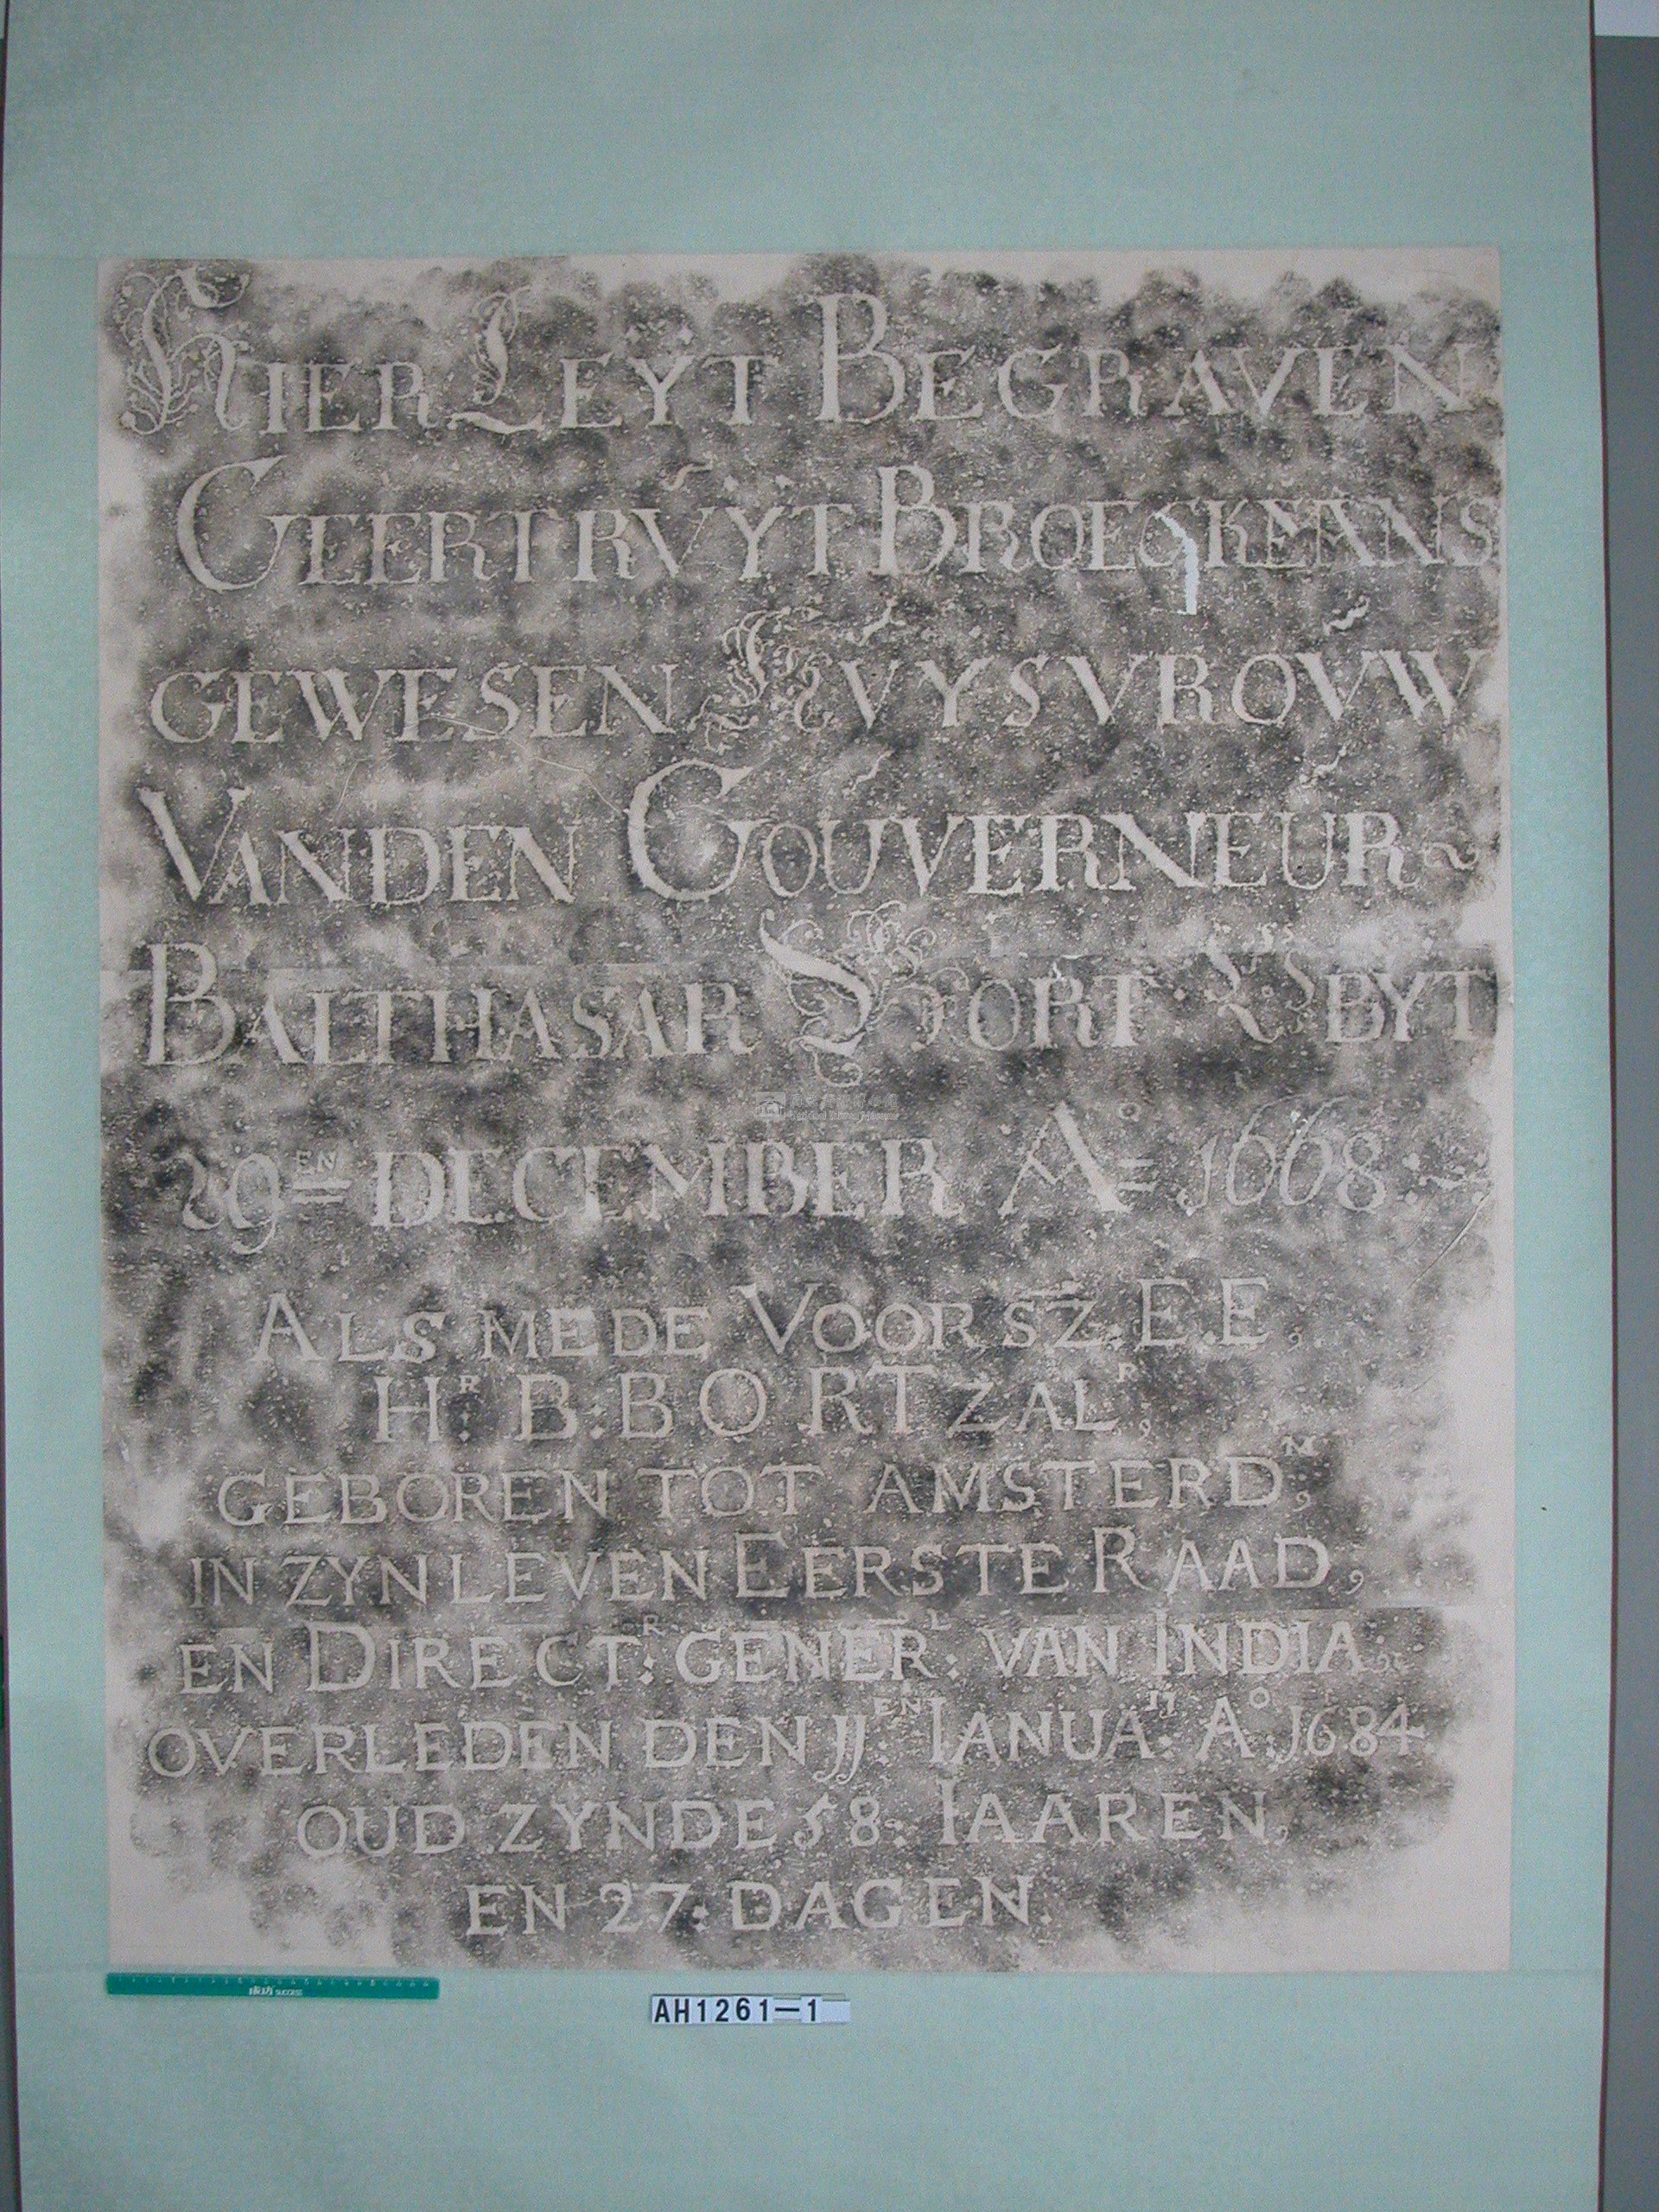 HIER LEYT BEGRAVEN
GEERTRVYT BROECKEANS
GEWESEN HVYSVROVW
VANDEN GOUVERNEUR ~
BALTHASAR BORT OBYT
29EN DECEMBER Ao 1668 ~
ALS MEDE VOORSZ: E E,
HR: B: BORT ZALR,
GEBOREN TOT AMSTERDM,
IN ZYN LEVEN EERSTE RAAD,
EN DIRECTR: GENERL: VAN INDIA,
OVERLEDEN DEN JJEN IANUA: Ao: J684
OUD ZYNDE 58: IAAREN,
EN 27: DAGEN.
SUCCESS
AH1261-1